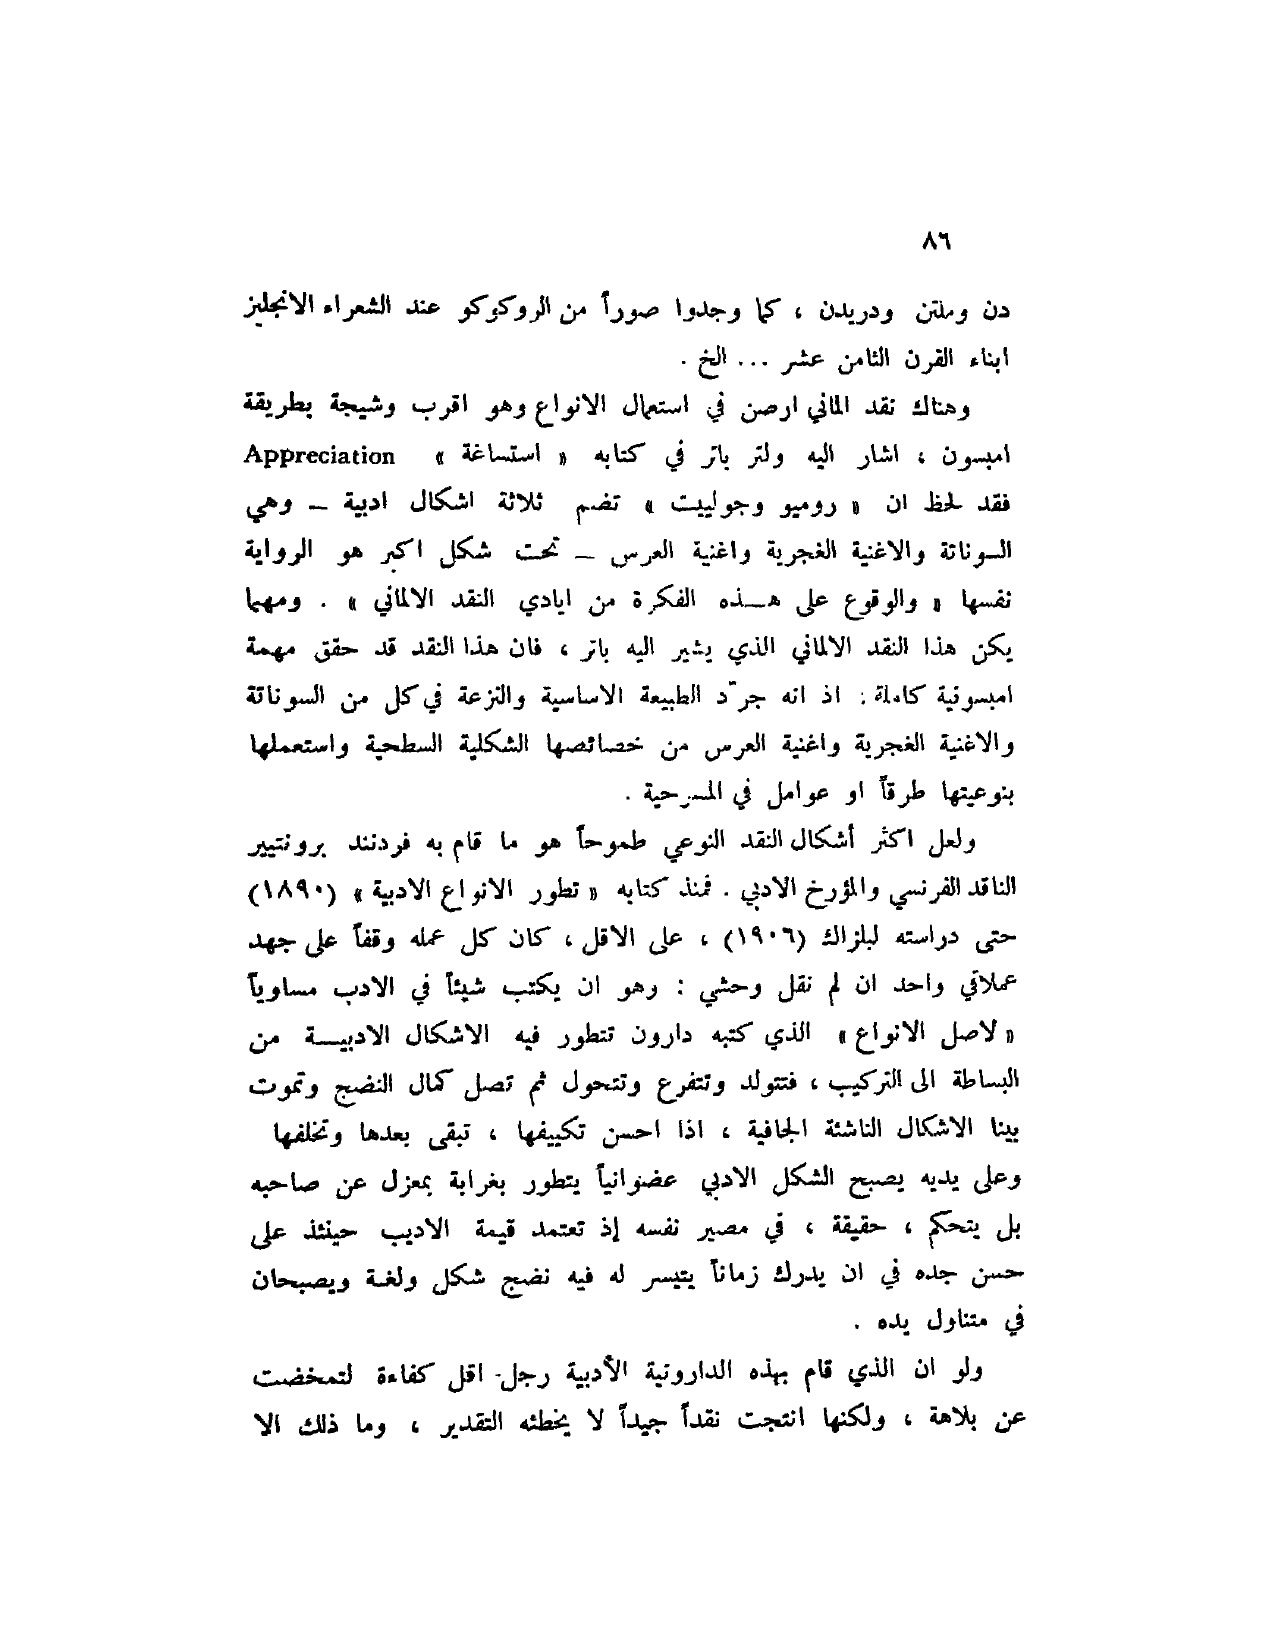 ٨٦
دن وملتن ودريدن ، كما وجدوا صوراً من الروكوكو عند الشعراء الانجليز
ابناء القرن الثامن عشر ... الخ .
وهناك نقد الماني ارصن في استعمال الانواع وهو اقرب وشيجة بطريقة
امبسون ، اشار اليه ولتر باتر في كتابه « استساغة » Appreciation
فقد لحظ ان « روميو وجولييت » تضم ثلاثة اشكال ادبية – وهي
السوناتة والاغنية الفجرية واغنية العرس – تحت شكل اكبر هو الرواية
نفسها « والوقوع على هـذه الفكرة من ايادي النقد الالماني » . ومهما
يكن هذا النقد الالماني الذي يشير اليه باتر ، فان هذا النقد قد حقق مهمة
امبسونية كاملة : اذ انه جرّد الطبيعة الاساسية والنزعة في كل من السوناتة
والاغنية الفجرية واغنية العرس من خصائصها الشكلية السطحية واستعملها
بنوعيتها طرقاً او عوامل في المسرحية .
ولعل اكثر أشكال النقد النوعي طموحاً هو ما قام به فردنند برونتيير
الناقد الفرنسي والمؤرخ الادبي . فمنذ كتابه « تطور الانواع الادبية » (١٨٩٠)
حتى دراسته لبلزاك (١٩٠٦) ، على الاقل ، كان كل عمله وقفاً على جهد
عملاقي واحد ان لم نقل وحشي : وهو ان يكتب شيئاً في الادب مساوياً
« لاصل الانواع » الذي كتبه دارون تتطور فيه الاشكال الادبيـة من
البساطة الى التركيب ، فتتولد وتتفرع وتتحول ثم تصل كمال النضج وتموت
بينا الاشكال الناشئة الجافية ، اذا احسن تكييفها ، تبقى بعدها وتخلفها
وعلى يديه يصبح الشكل الادبي عضوانياً يتطور بغرابة بمعزل عن صاحبه
بل يتحكم ، حقيقة ، في مصير نفسه إذ تعتمد قيمة الاديب حينئذ على
حسن جده في ان يدرك زماناً يتيسر له فيه نضج شكل ولغة ويصبحان
في متناول يده .
ولو ان الذي قام بهذه الدارونية الأدبية رجل اقل كفاءة لتمخضت
عن بلاهة ، ولكنها انتجت نقداً جيداً لا يخطئه التقدير ، وما ذلك الا